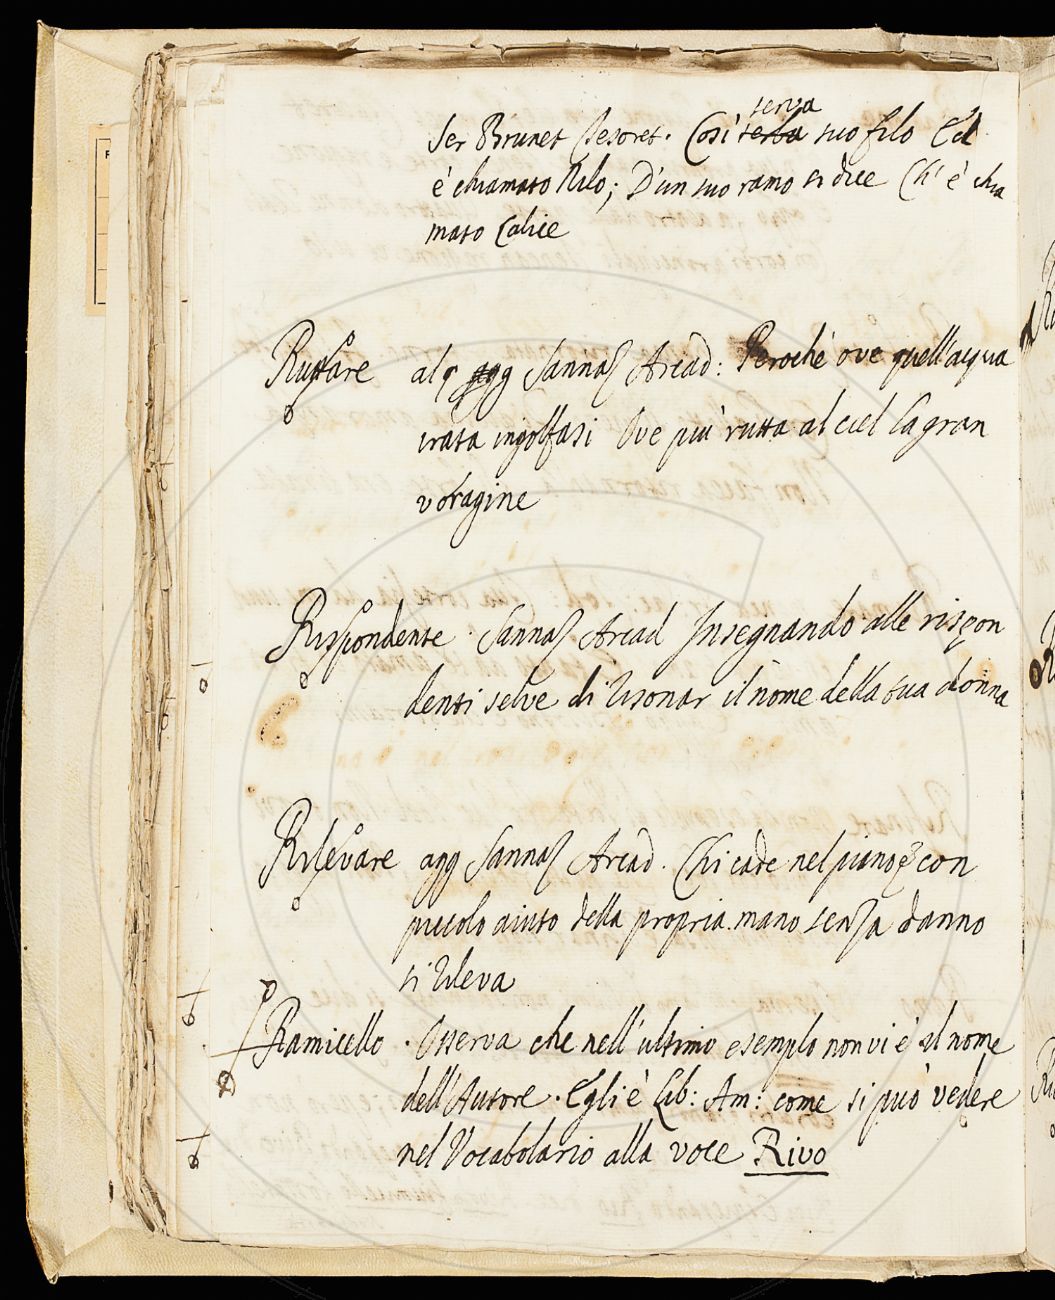 Ser Brunet Tesoret. Così serba serva suo filo Ed
è chiamato Nilo; D'un suo ramo si dice Ch'è chia
mato Calice
Ruttare alq agg Sannaz Arcad: Perochè ove quell'acqua
irata ingolfasi Ove più rutta al ciel la gran
voragine
Rispondente. Sannaz Arcad Insegnando alle rispon
denti selve di risonar il nome della sua donna
Rilevare agg Sannaz Arcad. Chi cade nel piano con
piccolo aiuto della propria mano senza danno
si rileva
Ramicello. Osserva che nell'ultimo esemplo non vi è il nome
dell'Autore. Egli è Lib: Am: come si può vedere
nel Vocabolario alla voce Rivo